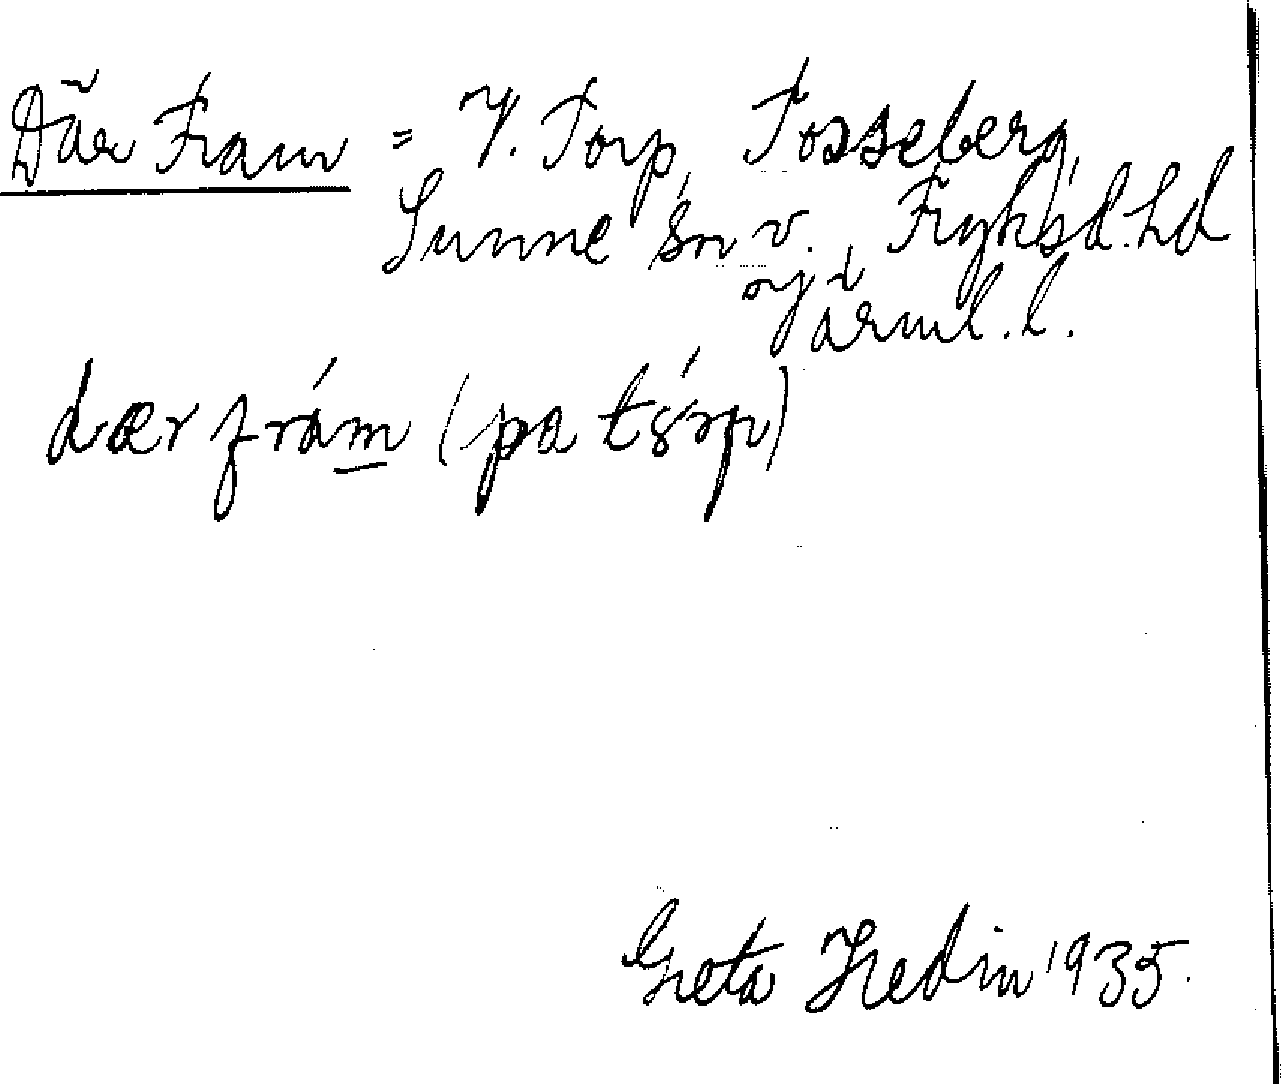 Där Fram = V. Torp, Tosseberg,
Sunne sn v., Fryksd. hd
Värml. l.
dær frám (pa tórp)
Greta Hedin 1935.